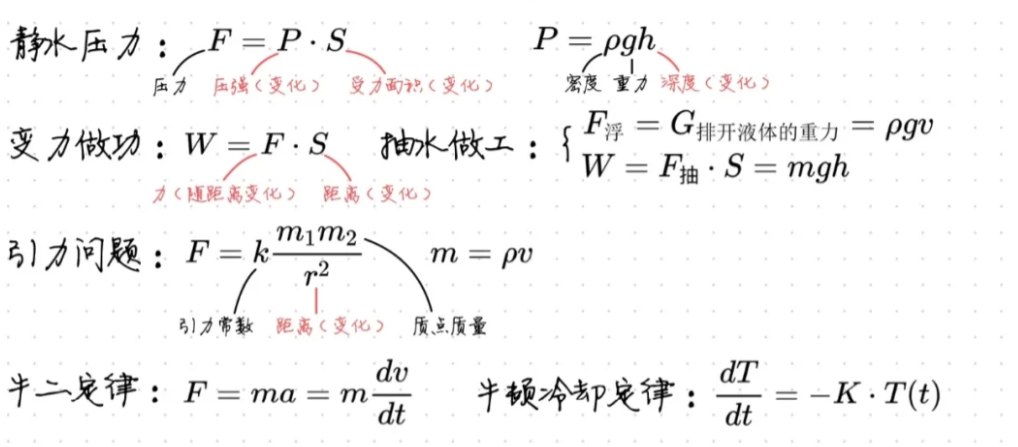 静水压力： F = P · S P = ρgh
压力 压强（变化） 受力面积（变化） 密度 重力 深度（变化）
变力做功： W = F · S 抽水做工： { F浮 = G排开液体的重力 = ρgv
W = F抽 · S = mgh
力（随距离变化） 距离（变化）
引力问题： F = k m₁m₂/r² m = ρv
引力常数 距离（变化） 质点质量
牛二定律： F = ma = m dv/dt 牛顿冷却定律： dT/dt = −K · T(t)